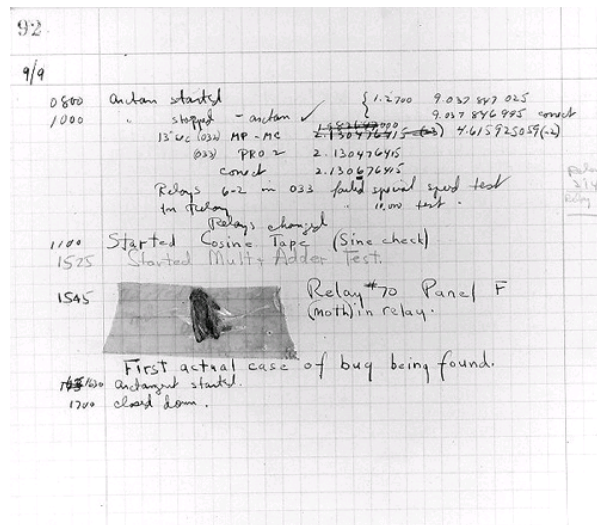 92
9/9
0800 antan started { 1.2700 9.037 847 025
1000 " stopped - antan ✓ 9.037 846 995 conect
13"uc (032) MP - MC 2.130476415 (-3) 4.615925059(-2)
(033) PRO 2 2.130476415
conect 2.130676415
Relays 6-2 in 033 failed special speed test
in Relay " 10.000 test .
Relays changed
1100 Started Cosine Tape (Sine check)
1525 Started Mult + Adder Test.
1545 Relay #70 Panel F
(moth) in relay.
First actual case of bug being found.
1630 antangent started.
1700 closed down .